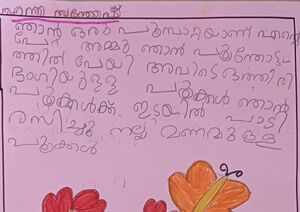 ഞാൻ ഒരു പൂമ്പാറ്റയാണ് എന്റെ
പേര് അമ്മു ഞാൻ പൂന്തോട്ട
ത്തിൽ പേയി അവിടെ ഒത്തിരി
ഭംഗിയുള്ള പൂക്കൾ ഞാൻ
പൂക്കൾക്ക് ഇടയിൽ പാട്ടി
രസിച്ചു നല്ല മണമുള്ള
പൂക്കൾ